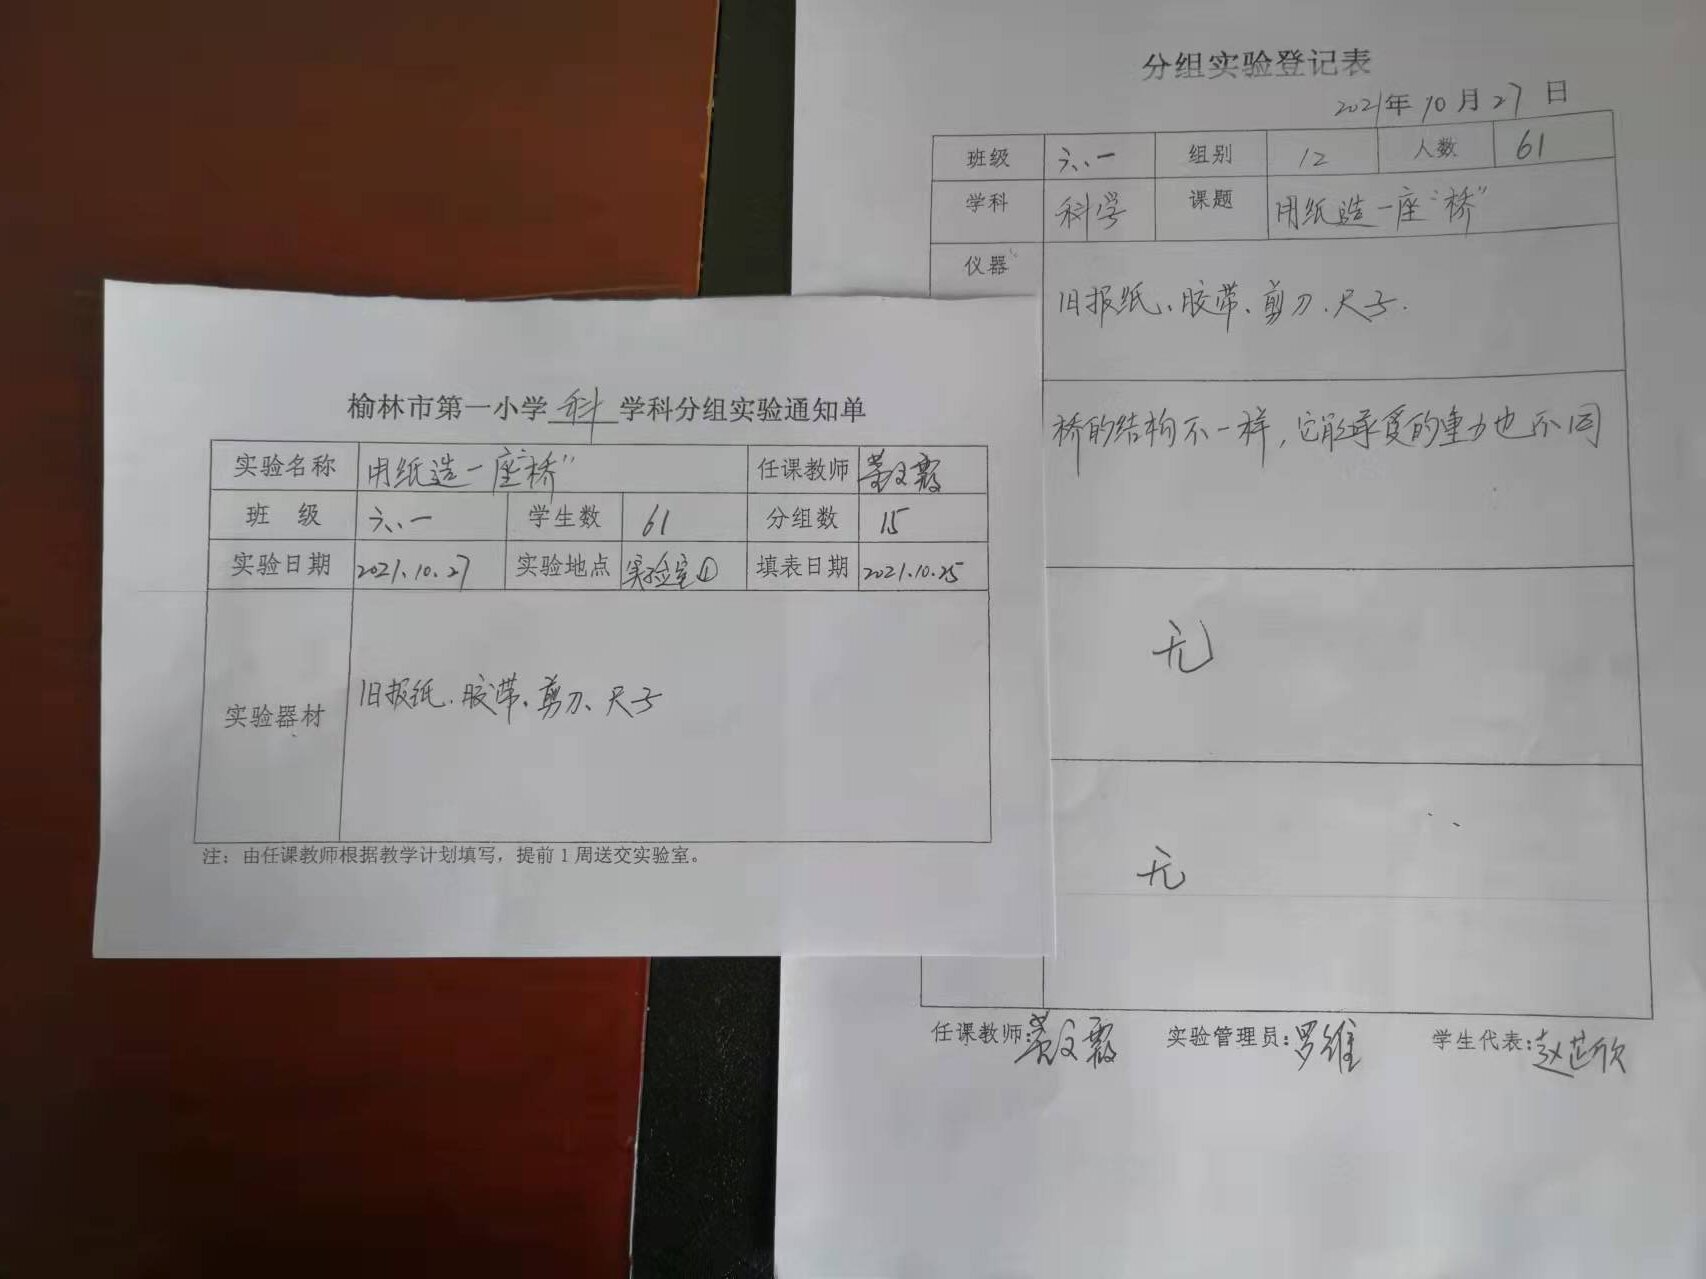 榆林市第一小学 科 学科分组实验通知单
实验名称 用纸造一座"桥" 任课教师
班 级 六、一 学生数 61 分组数 15
实验日期 2021.10.27 实验地点 实验室① 填表日期 2021.10.25
实验器材 旧报纸、胶带、剪刀、尺子
注：由任课教师根据教学计划填写，提前1周送交实验室。
分组实验登记表
2021年10月27日
班级 六、一 组别 12 人数 61
学科 科学 课题 用纸造一座"桥"
仪器 旧报纸、胶带、剪刀、尺子.
桥的结构不一样，它能承受的重力也不同
无
无
任课教师: 实验管理员:罗维 学生代表:赵芷欣